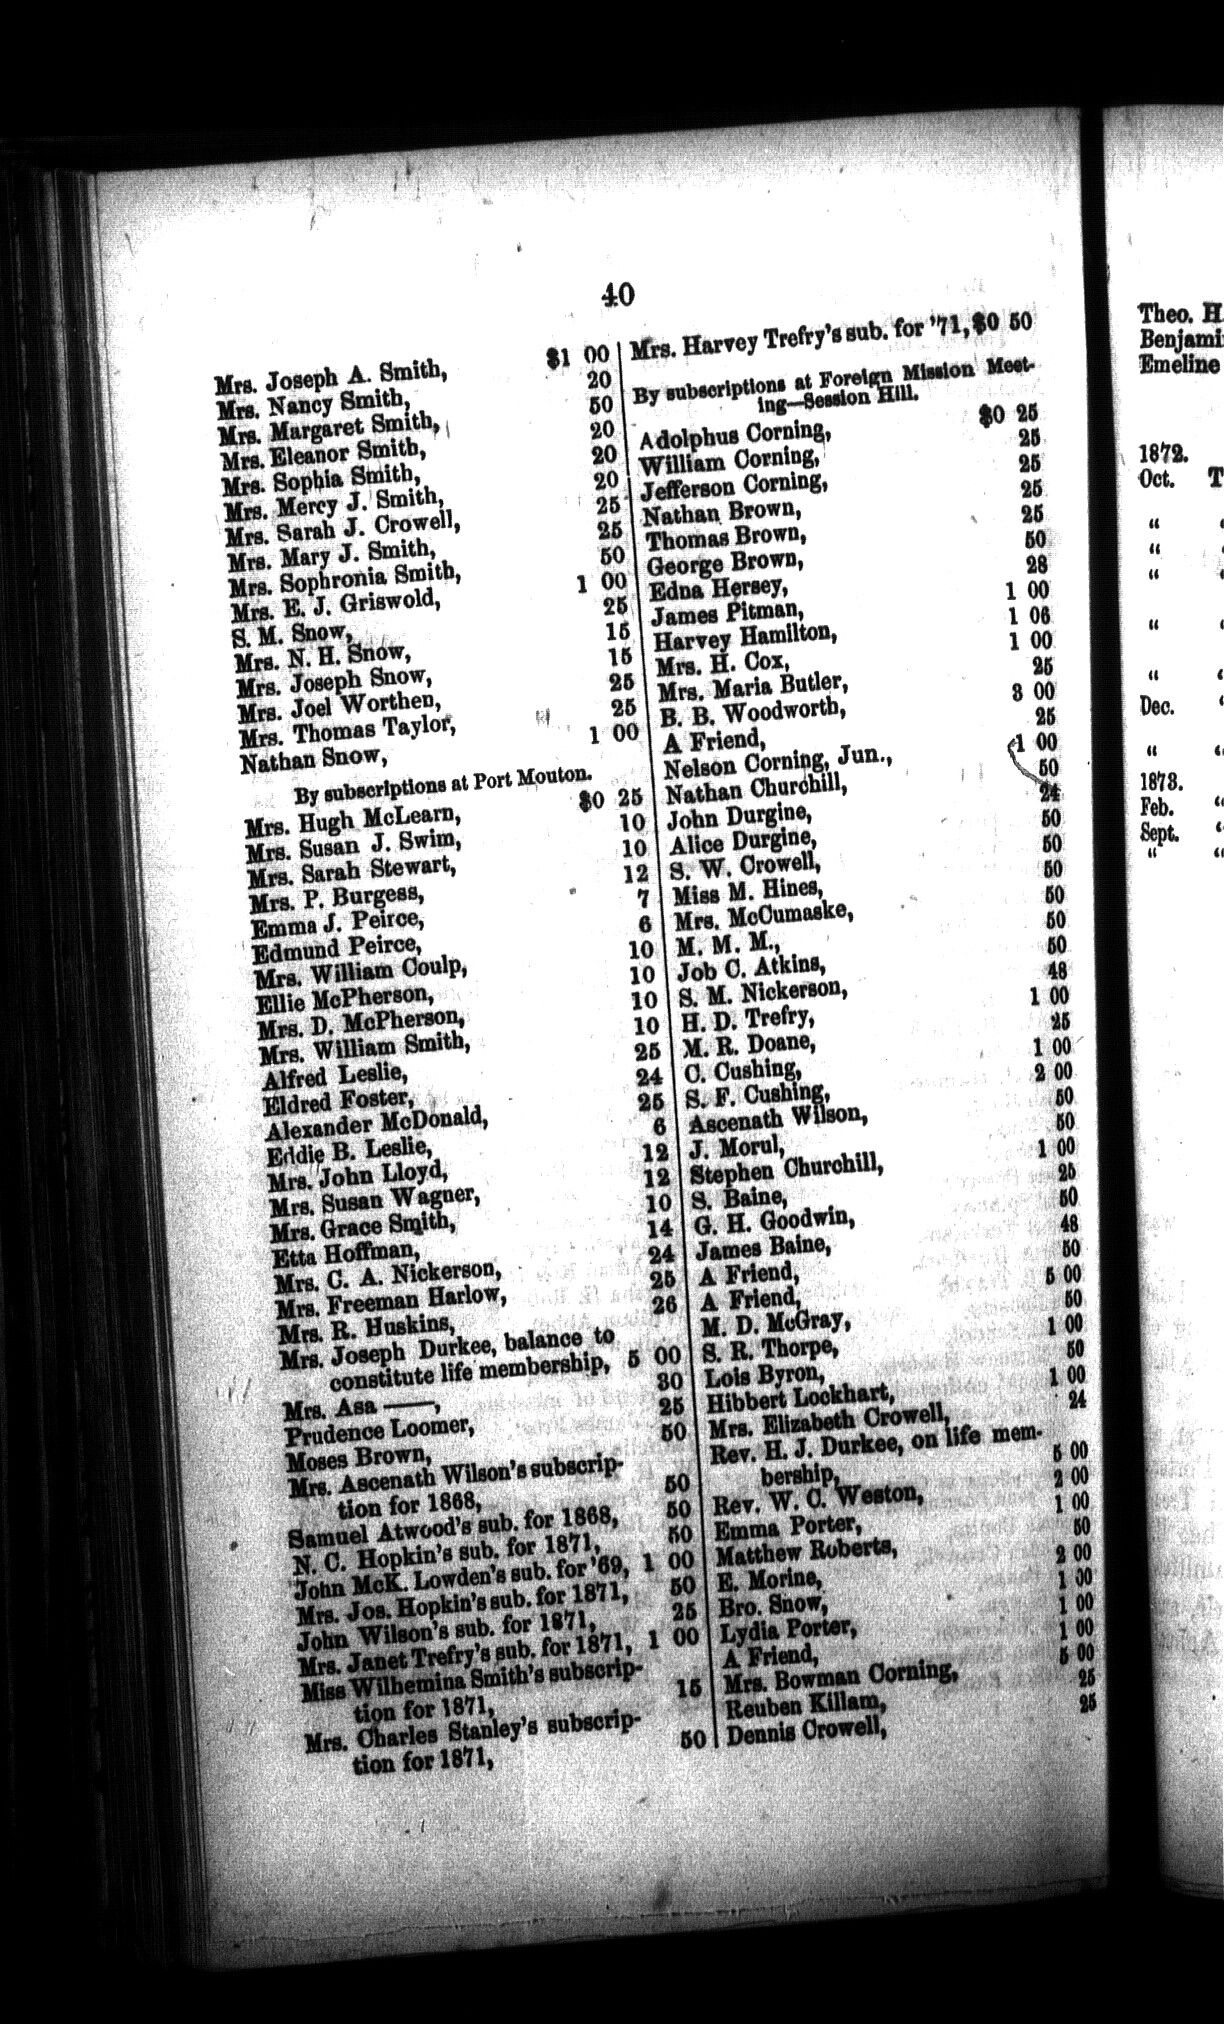 40
Mrs. Joseph A. Smith, $1 00
Mrs. Nancy Smith, 20
Mrs. Margaret Smith, 50
Mrs. Eleanor Smith, 20
Mrs. Sophia Smith, 20
Mrs. Mercy J. Smith, 20
Mrs. Sarah J. Crowell, 25
Mrs. Mary J. Smith, 25
Mrs. Sophronia Smith, 50
Mrs. E. J. Griswold, 1 00
S. M. Snow, 25
Mrs. N. H. Snow, 15
Mrs. Joseph Snow, 15
Mrs. Joel Worthen, 25
Mrs. Thomas Taylor, 25
Nathan Snow, 1 00
By subscriptions at Port Mouton.
Mrs. Hugh McLearn, $0 25
Mrs. Susan J. Swim, 10
Mrs. Sarah Stewart, 10
Mrs. P. Burgess, 12
Emma J. Peirce, 7
Edmund Peirce, 6
Mrs. William Coulp, 10
Ellie McPherson, 10
Mrs. D. McPherson, 10
Mrs. William Smith, 10
Alfred Leslie, 25
Eldred Foster, 24
Alexander McDonald, 25
Eddie B. Leslie, 6
Mrs. John Lloyd, 12
Mrs. Susan Wagner, 12
Mrs. Grace Smith, 10
Etta Hoffman, 14
Mrs. C. A. Nickerson, 24
Mrs. Freeman Harlow, 25
Mrs. R. Huskins, 26
Mrs. Joseph Durkee, balance to
constitute life membership, 5 00
Mrs. Asa ——, 30
Prudence Loomer, 25
Moses Brown, 50
Mrs. Ascenath Wilson's subscrip-
tion for 1868, 50
Samuel Atwood's sub. for 1868, 50
N. C. Hopkin's sub. for 1871, 50
John McK. Lowden's sub. for '69, 1 00
Mrs. Jos. Hopkin's sub. for 1871, 50
John Wilson's sub. for 1871, 25
Mrs. Janet Trefry's sub. for 1871, 1 00
Miss Wilhemina Smith's subscrip-
tion for 1871, 15
Mrs. Charles Stanley's subscrip-
tion for 1871, 50
Mrs. Harvey Trefry's sub. for '71, $0 50
By subscriptions at Foreign Mission Meet-
ing—Session Hill.
Adolphus Corning, $0 25
William Corning, 25
Jefferson Corning, 25
Nathan Brown, 25
Thomas Brown, 25
George Brown, 50
Edna Hersey, 28
James Pitman, 1 00
Harvey Hamilton, 1 06
Mrs. H. Cox, 1 00
Mrs. Maria Butler, 25
B. B. Woodworth, 3 00
A Friend, 25
Nelson Corning, Jun., 1 00
Nathan Churchill, 50
John Durgine, 24
Alice Durgine, 50
S. W. Crowell, 50
Miss M. Hines, 50
Mrs. McCumaske, 50
M. M. M., 50
Job C. Atkins, 50
S. M. Nickerson, 48
H. D. Trefry, 1 00
M. R. Doane, 25
C. Cushing, 1 00
S. F. Cushing, 2 00
Ascenath Wilson, 50
J. Morul, 50
Stephen Churchill, 1 00
S. Baine, 25
G. H. Goodwin, 50
James Baine, 48
A Friend, 50
A Friend, 5 00
M. D. McGray, 50
S. R. Thorpe, 1 00
Lois Byron, 50
Hibbert Lockhart, 1 00
Mrs. Elizabeth Crowell, 24
Rev. H. J. Durkee, on life mem-
bership, 5 00
Rev. W. C. Weston, 2 00
Emma Porter, 1 00
Matthew Roberts, 50
E. Morine, 2 00
Bro. Snow, 1 00
Lydia Porter, 1 00
A Friend, 1 00
Mrs. Bowman Corning, 5 00
Reuben Killam, 25
Dennis Crowell, 25
Theo. H.
Benjami
Emeline
1872.
Oct. T
" "
" "
" "
" "
" "
Dec. "
" "
1873.
Feb. "
Sept. "
" "